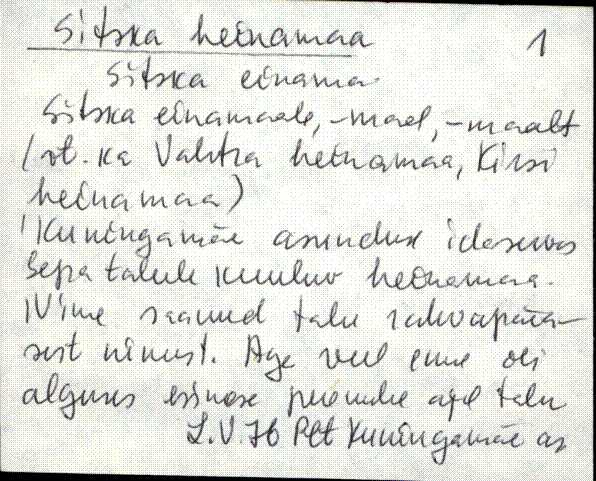 Sitska heinamaa 1
Sitska einama
Sitska einamaale, -maal, -maalt
(vt. ka Vahtra heinamaa, Kirsi
heinamaa)
Kuningamäe asunduse idaservas
Sepa talule kuuluv heinamaa.
Nime saanud talu rahvapära-
sest nimest. Aga veel enne oli
alguses esimese peremehe ajal talu
L.V.76 Plt Kuningamäe as